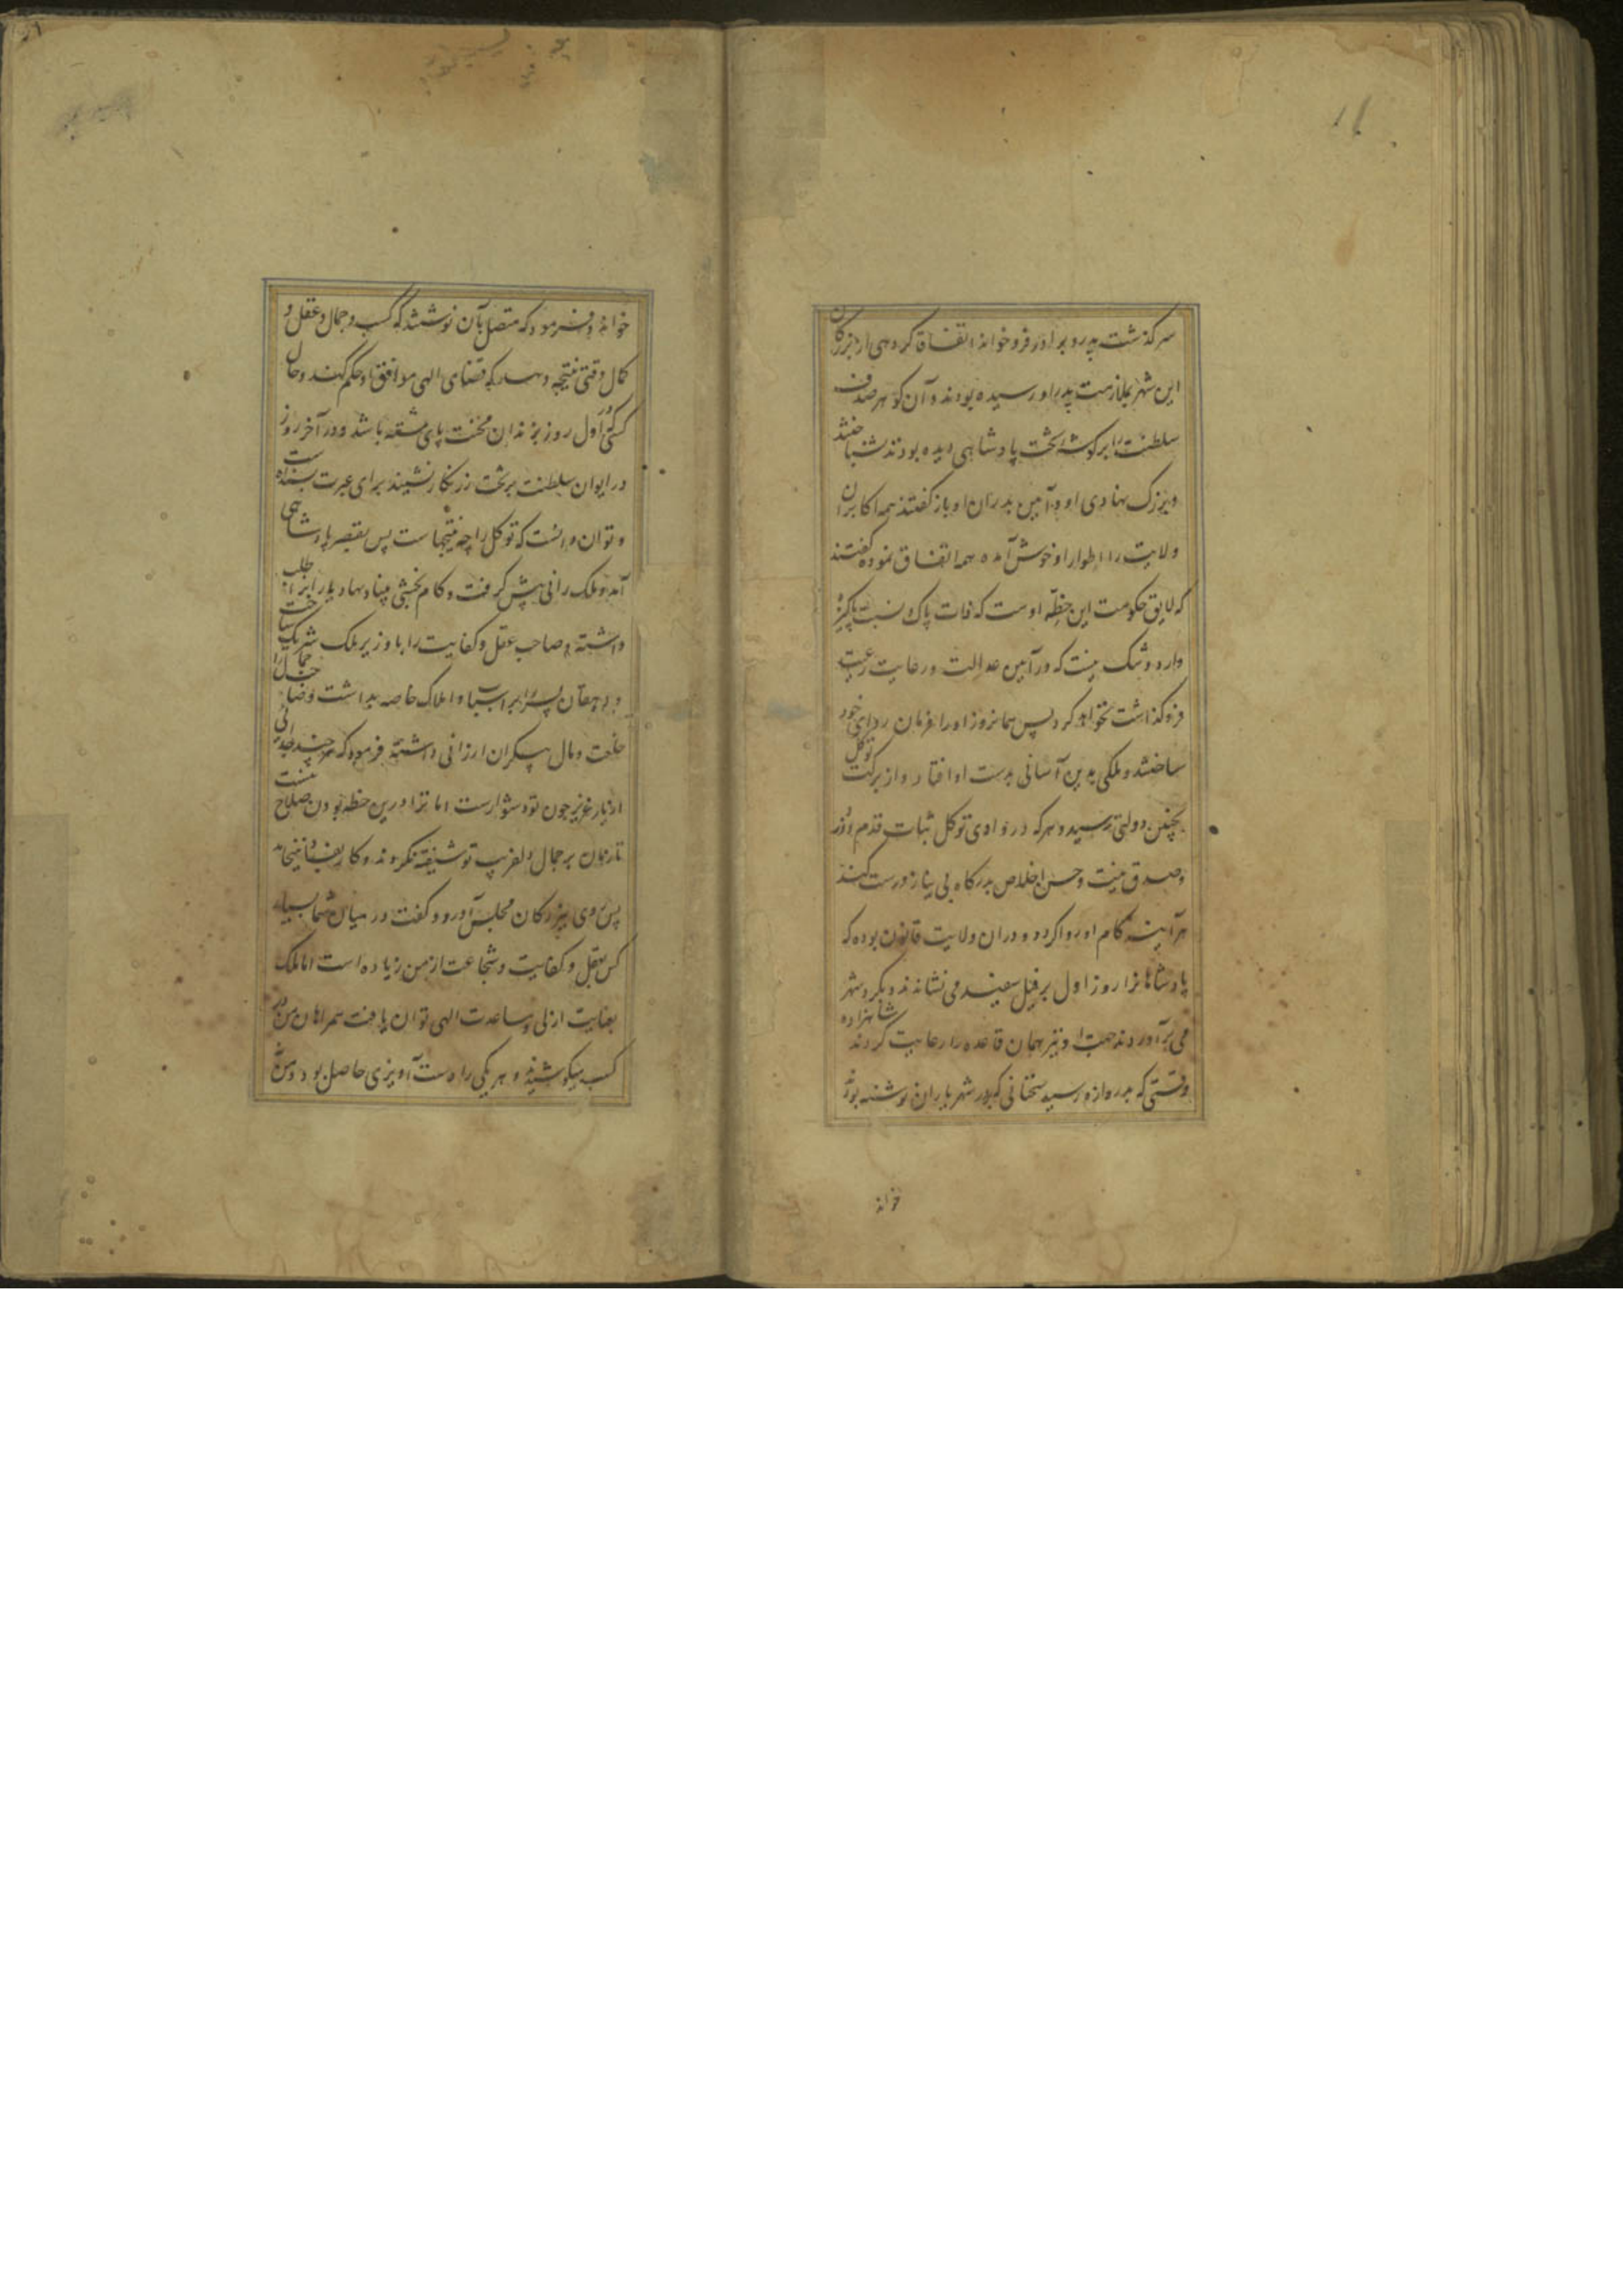 سرگذشت پدر و برادر فرو خواند اتفاقا گروهی از بزرگان
این شهر بملازمت پدر او رسیده بودند و آن گوهر صدف
سلطنت را بر گوشه تخت پادشاهی دیده بودند شناختند
و بزرگ نهادی او و آیین پدران او باز گفتند همه اکابر آن
ولایت را اطوار او خوش آمده همه اتفاق نموده گفتند
که لایق حکومت این خطه اوست که ذات پاک و نسبت پاکیزه
دارد و شک نیست که در آیین عدالت و رعایت رعیت
فرو گذاشت نخواهد کرد پس همانروز او را فرمان روای خود
ساختند و ملکی بدین آسانی بدست او افتاد و از برکت توکل
بچنین دولتی رسید و هر که در وادی توکل ثبات قدم ورزد
و صدق نیت و حسن اخلاص بدرگاه بی نیاز درست کند
هر آینه کام او روا گردد و دران ولایت قانون بوده که
پادشاهانرا روز اول بر فیل سفید می نشاندند و بگرد شهر
می برآوردند جهت شاهزاده نیز همان قاعده را رعایت کردند
وقتی که بدروازه رسید سخنانی که بر در شهر یاران نوشته بودند
خواند
خوانده و فرمود که متصل بآن نوشتند که کسب و جمال و عقل و
کمال وقتی نتیجه دهد که قضای الهی موافق او حکم کند و حال
کسی که اول روز در زندان محنت پای بسته باشد و در آخر روز
در ایوان سلطنت بر تخت زرنگار نشیند برای عبرت بسنده است
و توان دانست که توکل را چه نتیجهاست پس بقصر پادشاهی
آمد و ملک رانی پیش گرفت و کام بخشی بنیاد نهاد یاران را طلب
داشته صاحب عقل و کفایت را با وزیر ملک شریک ساخت
و دهقان پسر را بر اسباب و املاک خاصه بداشت و صاحب جمال را
خلعت و مال بیکران ارزانی داشته فرمود که هر چند جدایی
از یار عزیز چون تو دشوارست اما ترا درین خطه بودن صلاح نیست
تا زنان بر جمال دلفریب تو شیفته نگردند و کار بفساد نینجامد
پس روی ببزرگان مجلس آورد و گفت در میان شما بسیار
کس بعقل و کفایت و شجاعت از من زیاده است اما ملک
بعنایت ازلی و مساعدت الهی توان یافت همراهان من در
کسب میکوشیدند و هر یکی را دست آویزی حاصل بود و من